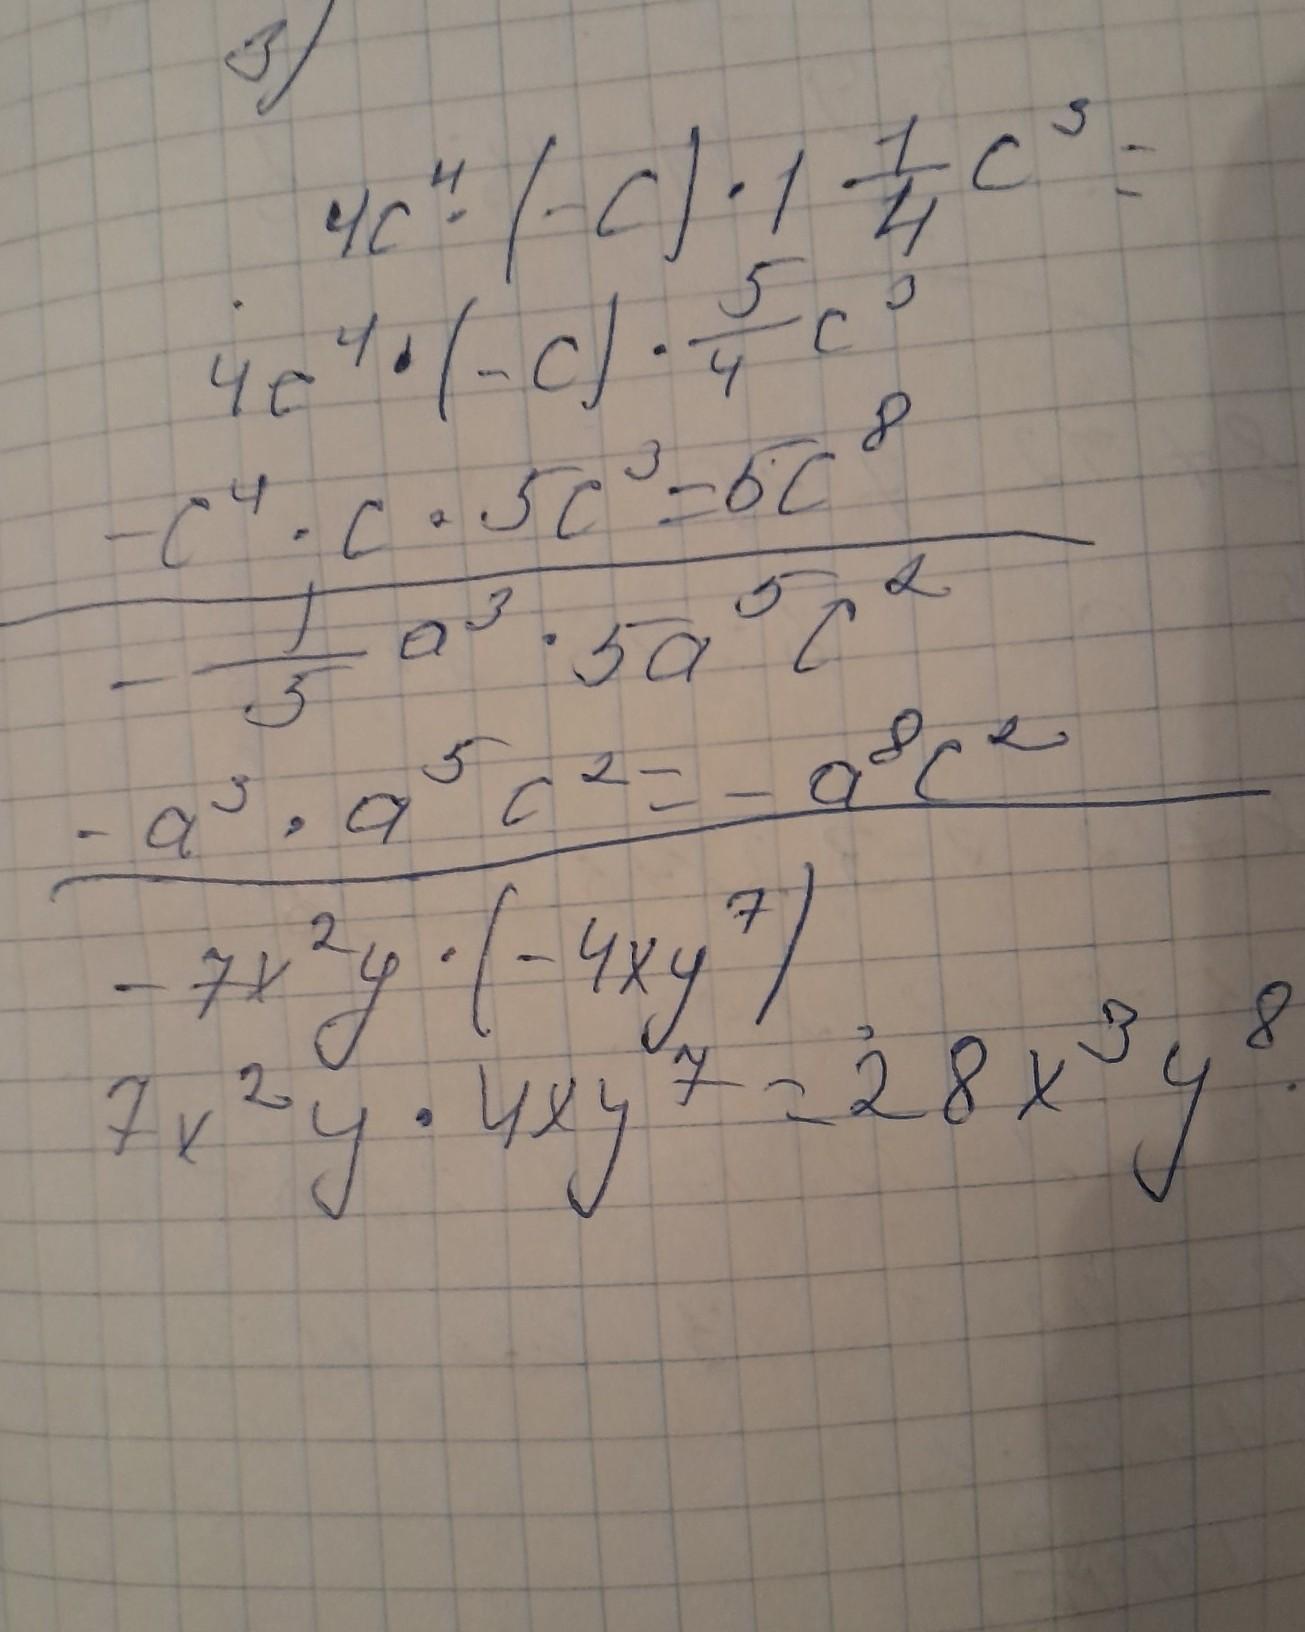 3)
4c⁴ · (-c) · 1 · 1/4 c³ =
4c⁴ · (-c) · 5/4 c³
-c⁴ · c · 5c³ = 5c⁸
- 1/5 a³ · 5a⁵c²
- a³ · a⁵c² = - a⁸c²
- 7x²y · (-4xy⁷)
7x²y · 4xy⁷ = 28x³y⁸.